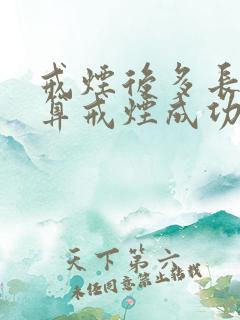 戒煙後多長
算戒煙成功
天下第六
未經同意禁止轉載